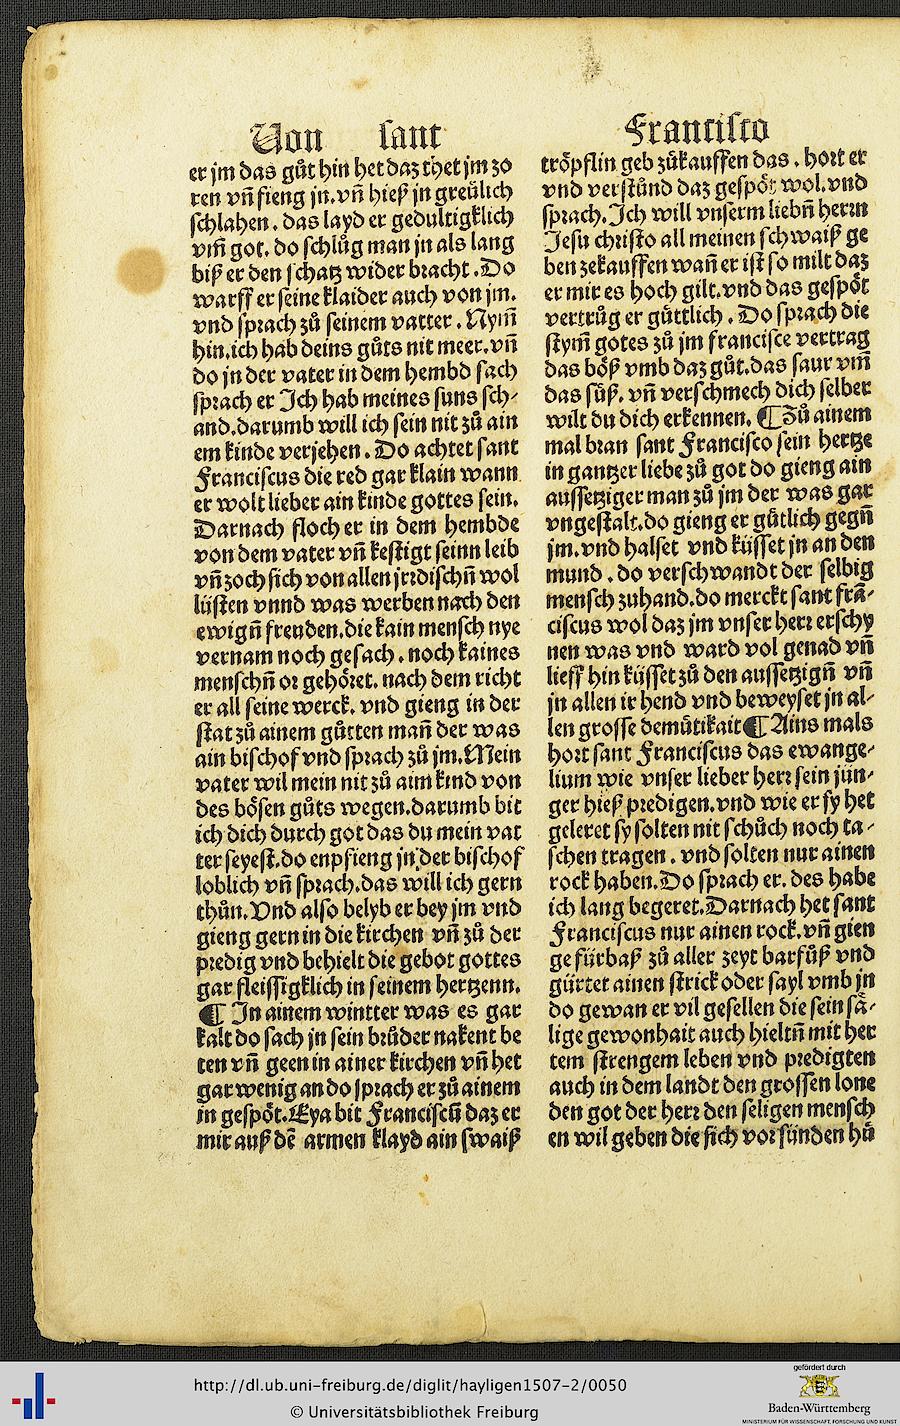 Von sant
Francisco
er jm das gůt hin het daz thet jm zo
ren vñ fieng jn. vñ hieß jn greülich
schlahen. das layd er gedultigklich
vm̃ got. do schlůg man jn als lang
biß er den schatz wider bracht. Do
warff er seine klaider auch von jm.
vnd sprach zů seinem vatter. Nym̃
hin. ich hab deins gůts nit meer. vñ
do jn der vater in dem hembd sach
sprach er Ich hab meines suns sch⸗
and. darumb will ich sein nit zů ain
em kinde verjehen. Do achtet sant
Franciscus die red gar klain wann
er wolt lieber ain kinde gottes sein.
Darnach floch er in dem hembde
von dem vater vñ kestigt seinn leib
vñ zoch sich von allen jrdischñ wol
lüsten vnnd was werben nach den
ewigñ freuden. die kain mensch nye
vernam noch gesach. noch kaines
menschñ or gehöret. nach dem richt
er all seine werck. vnd gieng in der
stat zů ainem gůtten mañ der was
ain bischof vnd sprach zů jm. Mein
vater wil mein nit zů aim kind von
des bösen gůts wegen. darumb bit
ich dich durch got das du mein vat
ter seyest. do enpfieng jn der bischof
loblich vñ sprach. das will ich gern
thůn. Vnd also belyb er bey jm vnd
gieng gern in die kirchen vñ zů der
predig vnd behielt die gebot gottes
gar fleissigklich in seinem hertzenn.
¶ In ainem wintter was es gar
kalt do sach jn sein brůder nakent be
ten vñ geen in ainer kirchen vñ het
gar wenig an do sprach er zů ainem
in gespöt. Eya bit Franciscũ daz er
mir auß dẽ armen klayd ain swaiß
tröpflin geb zůkauffen das. hort er
vnd verstůnd daz gespöt wol. vnd
sprach. Ich will vnserm liebñ herrn
Jesu christo all meinen schwaiß ge
ben zekauffen wañ er ist so milt daz
er mir es hoch gilt. vnd das gespöt
vertrůg er güttlich. Do sprach die
stym̃ gotes zů jm francisce vertrag
das böß vmb daz gůt. das saur vm̃
das süß. vñ verschmech dich selber
wilt du dich erkennen. ¶ Zů ainem
mal bran sant Francisco sein hertze
in gantzer liebe zů got do gieng ain
aussetziger man zů jm der was gar
vngestalt. do gieng er gütlich gegñ
jm. vnd halset vnd küsset jn an den
mund. do verschwandt der selbig
mensch zuhand. do merckt sant frã⸗
ciscus wol daz jm vnser herr erschy
nen was vnd ward vol genad vñ
lieff hin küsset zů den aussetzigñ vñ
jn allen ir hend vnd beweyset jn al⸗
len grosse demütikait ¶ Ains mals
hort sant Franciscus das ewange⸗
lium wie vnser lieber herr sein jün⸗
ger hieß predigen. vnd wie er sy het
geleret sy solten nit schůch noch ta⸗
schen tragen. vnd solten nur ainen
rock haben. Do sprach er. des habe
ich lang begeret. Darnach het sant
Franciscus nur ainen rock. vñ gien
ge fürbaß zů aller zeyt barfůß vnd
gürtet ainen strick oder sayl vmb jn
do gewan er vil gesellen die sein sä⸗
lige gewonhait auch hieltñ mit her
tem strengem leben vnd predigten
auch in dem landt den grossen lone
den got der herr den seligen mensch
en wil geben die sich vor sünden hů
http://dl.ub.uni-freiburg.de/diglit/hayligen1507-2/0050
© Universitätsbibliothek Freiburg
gefördert durch
Baden-Württemberg
MINISTERIUM FÜR WISSENSCHAFT, FORSCHUNG UND KUNST